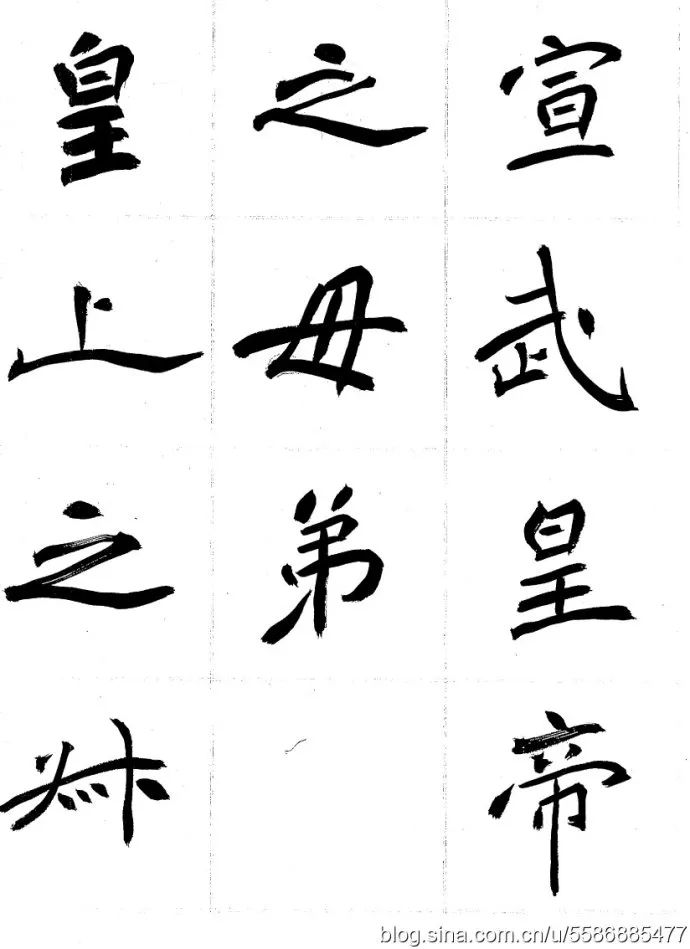 宣武皇帝
之母弟
皇上之叔
blog.sina.com.cn/u/5586885477